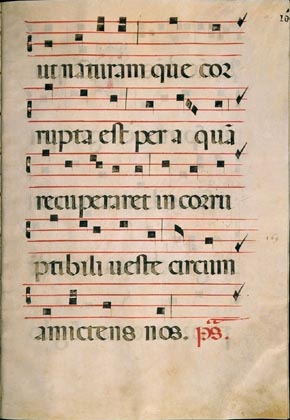 ut naturam que cor
rupta est per a quā
recuperaret in corru
ptibili ueste circum
amictens nos. ps̄.